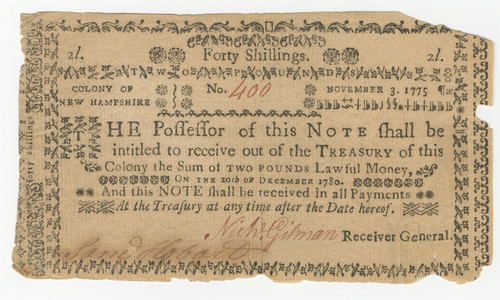 2l. Forty Shillings. 2l.
TWO POUNDS
COLONY OF NEW HAMPSHIRE No. 400 NOVEMBER 3. 1775
THE Possessor of this NOTE shall be
intitled to receive out of the TREASURY of this
Colony the Sum of TWO POUNDS Lawful Money,
ON THE 20th OF DECEMBER 1780.
And this NOTE shall be received in all Payments
At the Treasury at any time after the Date hereof.
Nichs Gilman Receiver General.
Forty Shillings